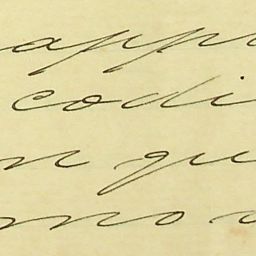 appr
codi
n qu
mo